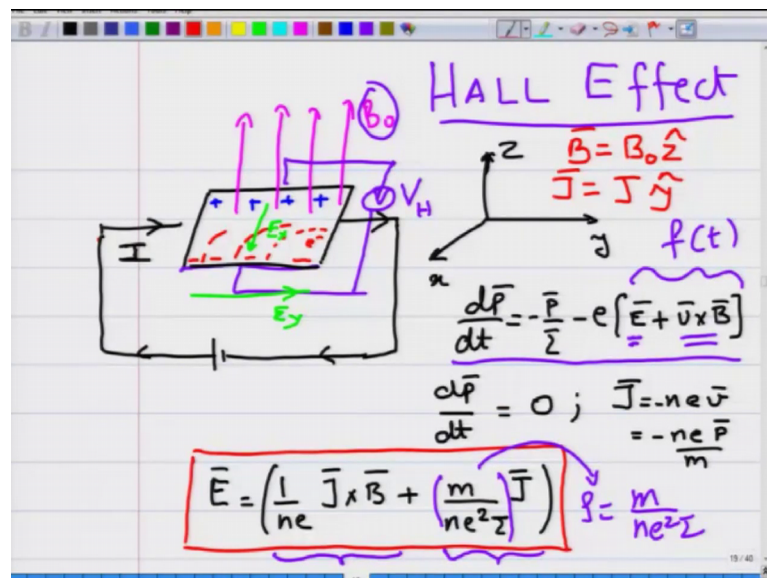 HALL Effect
B₀
z
B̄ = B₀ẑ
J̄ = J ŷ
+ + + +
V_H
I
Eₓ
e⁻
E_y
y
x
f(t)
dp̄/dt = -p̄/τ - e[Ē + v̄×B̄]
dp̄/dt = 0 ; J̄ = -nev̄
= -nep̄/m
Ē = (1/ne J̄×B̄ + (m/ne²τ) J̄)
ρ = m/ne²τ
19 / 40